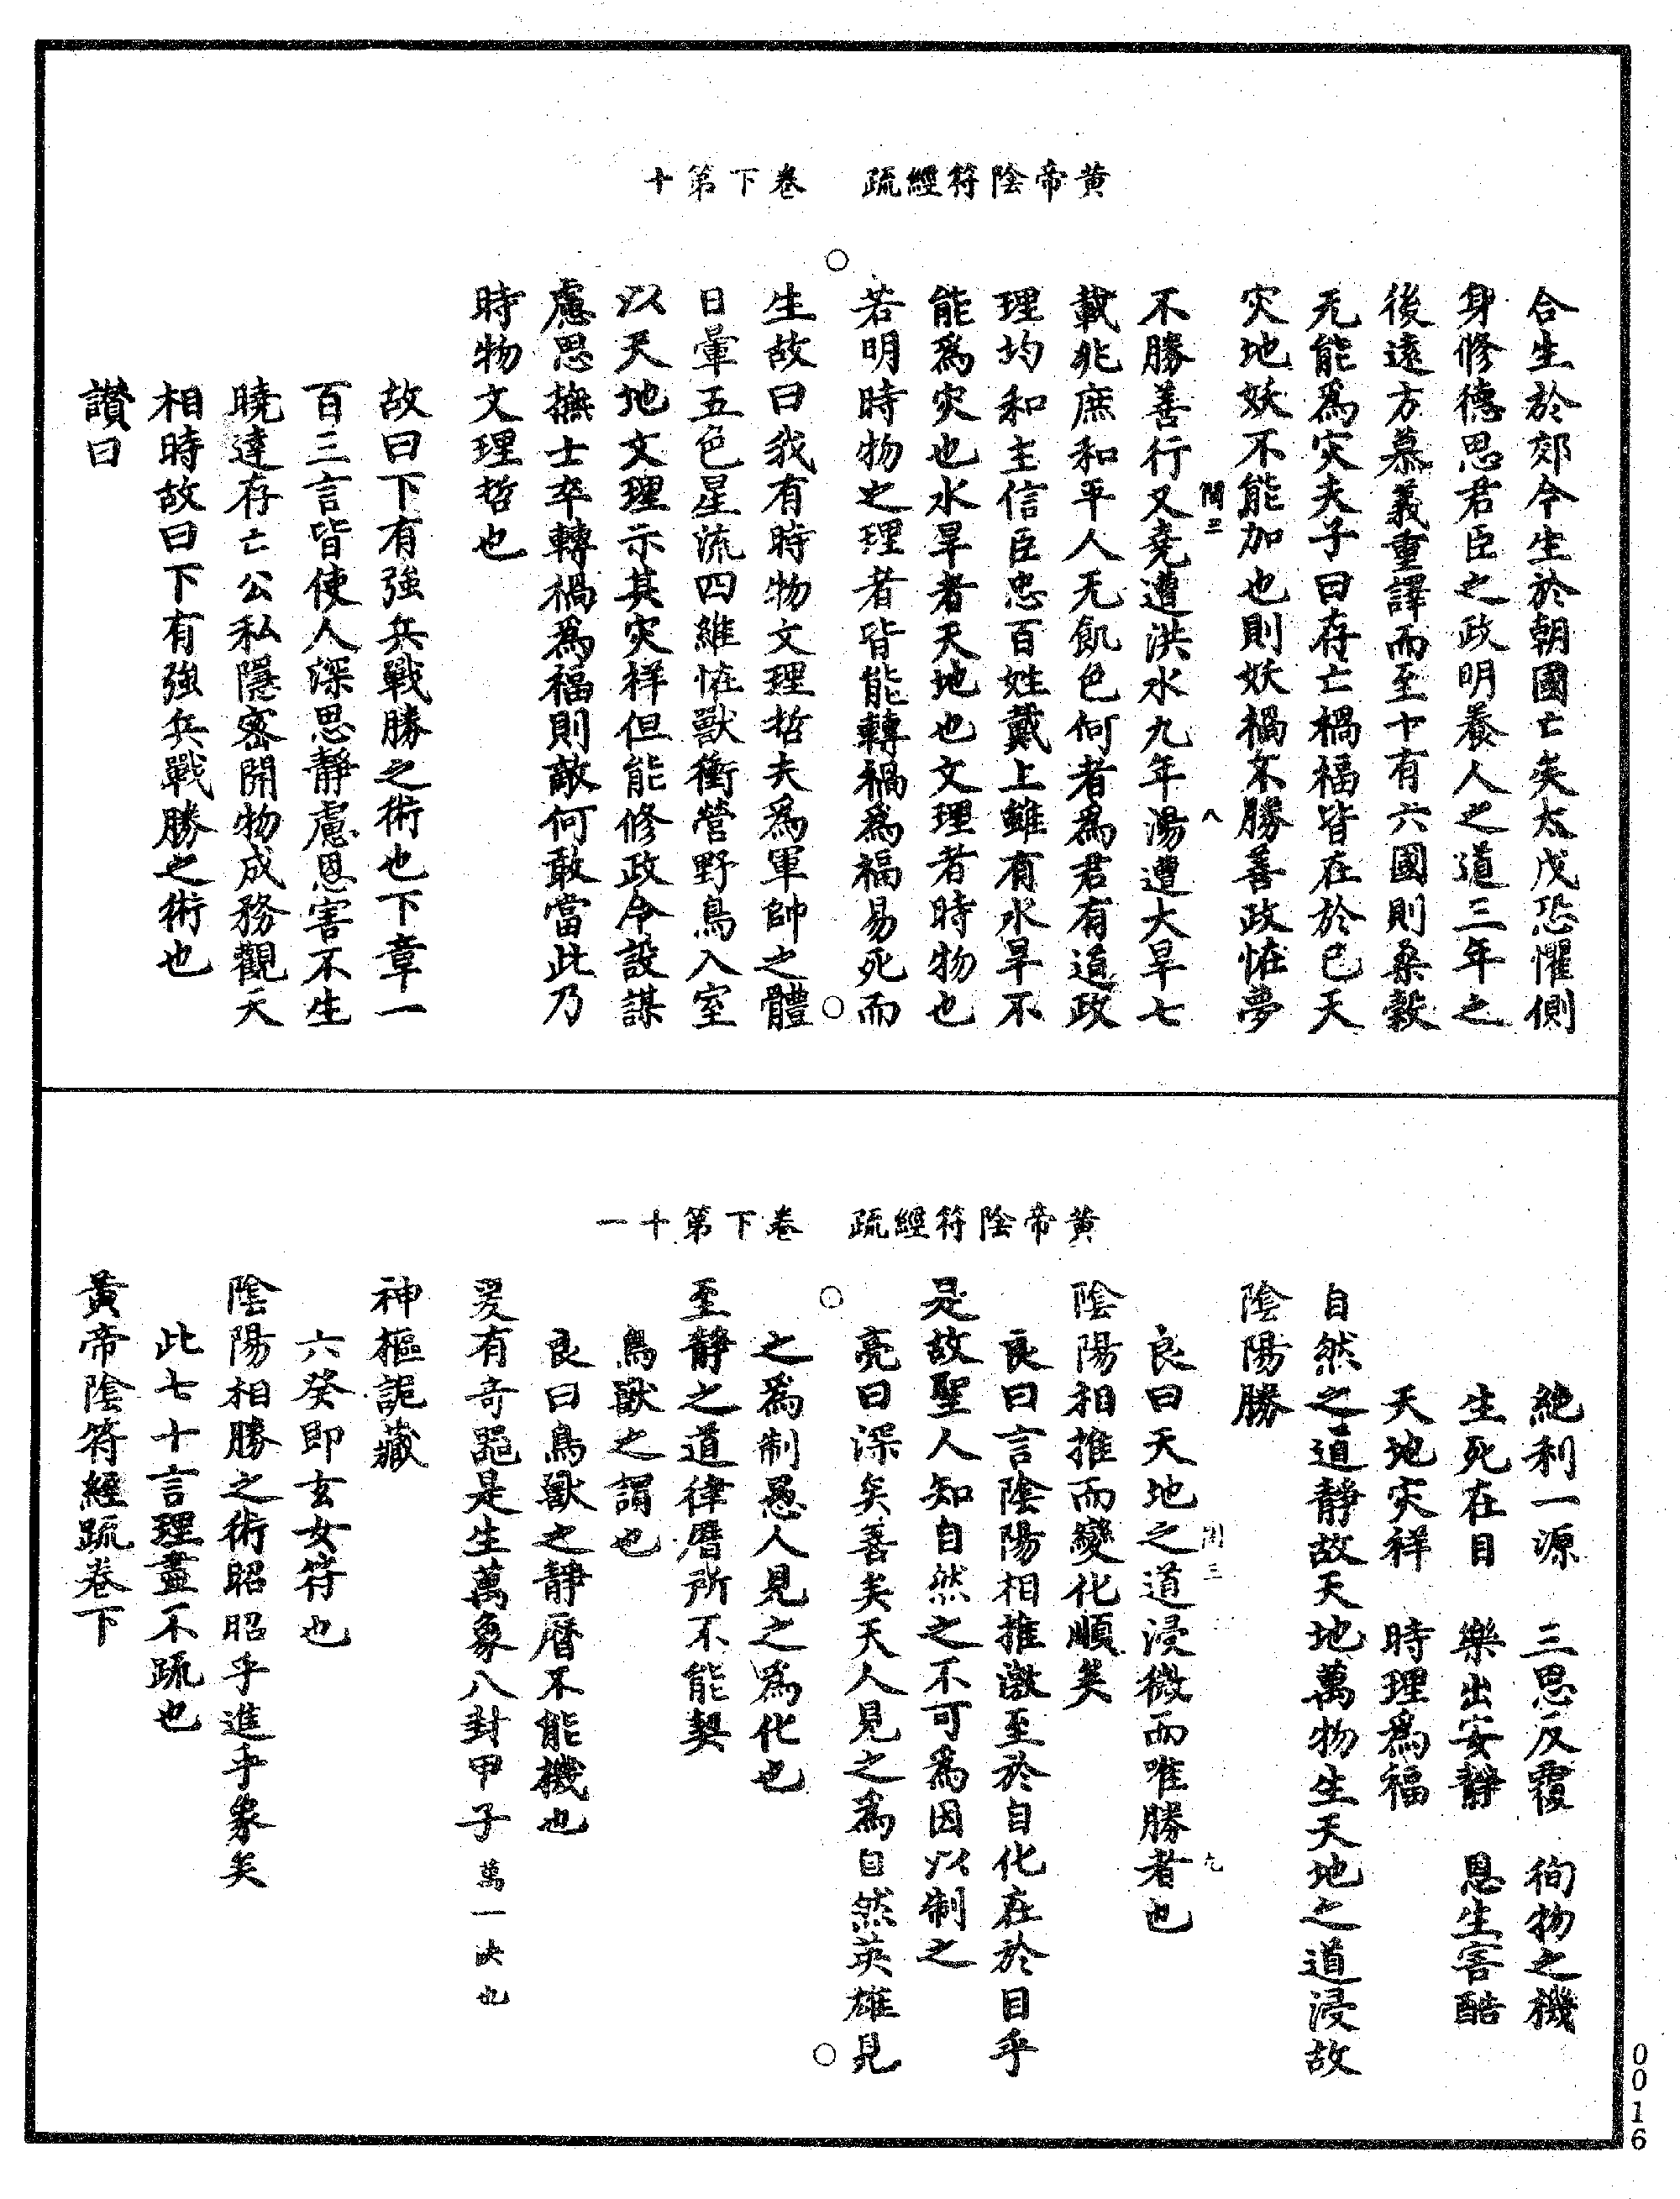 黄帝陰符經疏　卷下第十
合生於郊今生於朝國亡矣太戊恐懼側
身修德思君臣之政明養人之道三年之
後遠方慕義重譯而至十有六國則桑穀
无能爲灾夫子曰存亡禍福皆在於己天
灾地妖不能加也則妖禍不勝善政恠夢
閏三　八
不勝善行又堯遭洪水九年湯遭大旱七
載兆庶和平人无飢色何者爲君有道政
理均和主信臣忠百姓戴上雖有水旱不
能爲灾也水旱者天地也文理者時物也
若明時物之理者皆能轉禍爲福易死而
生故曰我有時物文理哲夫爲軍帥之體
日暈五色星流四維恠獸衝營野鳥入室
以天地文理示其灾祥但能修政令設謀
慮思撫士卒轉禍爲福則敵何敢當此乃
時物文理哲也
故曰下有強兵戰勝之術也下章一
百三言皆使人深思靜慮恩害不生
曉達存亡公私隱密開物成務觀天
相時故曰下有強兵戰勝之術也
讃曰
黄帝陰符經疏　卷下第十一
絶利一源　三思反覆　徇物之機
生死在目　樂出安靜　恩生害酷
天地灾祥　時理爲福
自然之道靜故天地萬物生天地之道浸故
陰陽勝
閏三　九
良曰天地之道浸微而唯勝者也
陰陽相推而變化順矣
良曰言陰陽相推激至於自化在於目乎
是故聖人知自然之不可爲因以制之
亮曰深矣善矣天人見之爲自然英雄見
之爲制愚人見之爲化也
至靜之道律曆所不能契
鳥獸之謂也
良曰鳥獸之靜曆不能機也
爰有奇噐是生萬象八封甲子萬一决也
神樞詭藏
六癸即玄女符也
陰陽相勝之術昭昭乎進乎象矣
此七十言理盡不疏也
黄帝陰符經疏卷下
0016